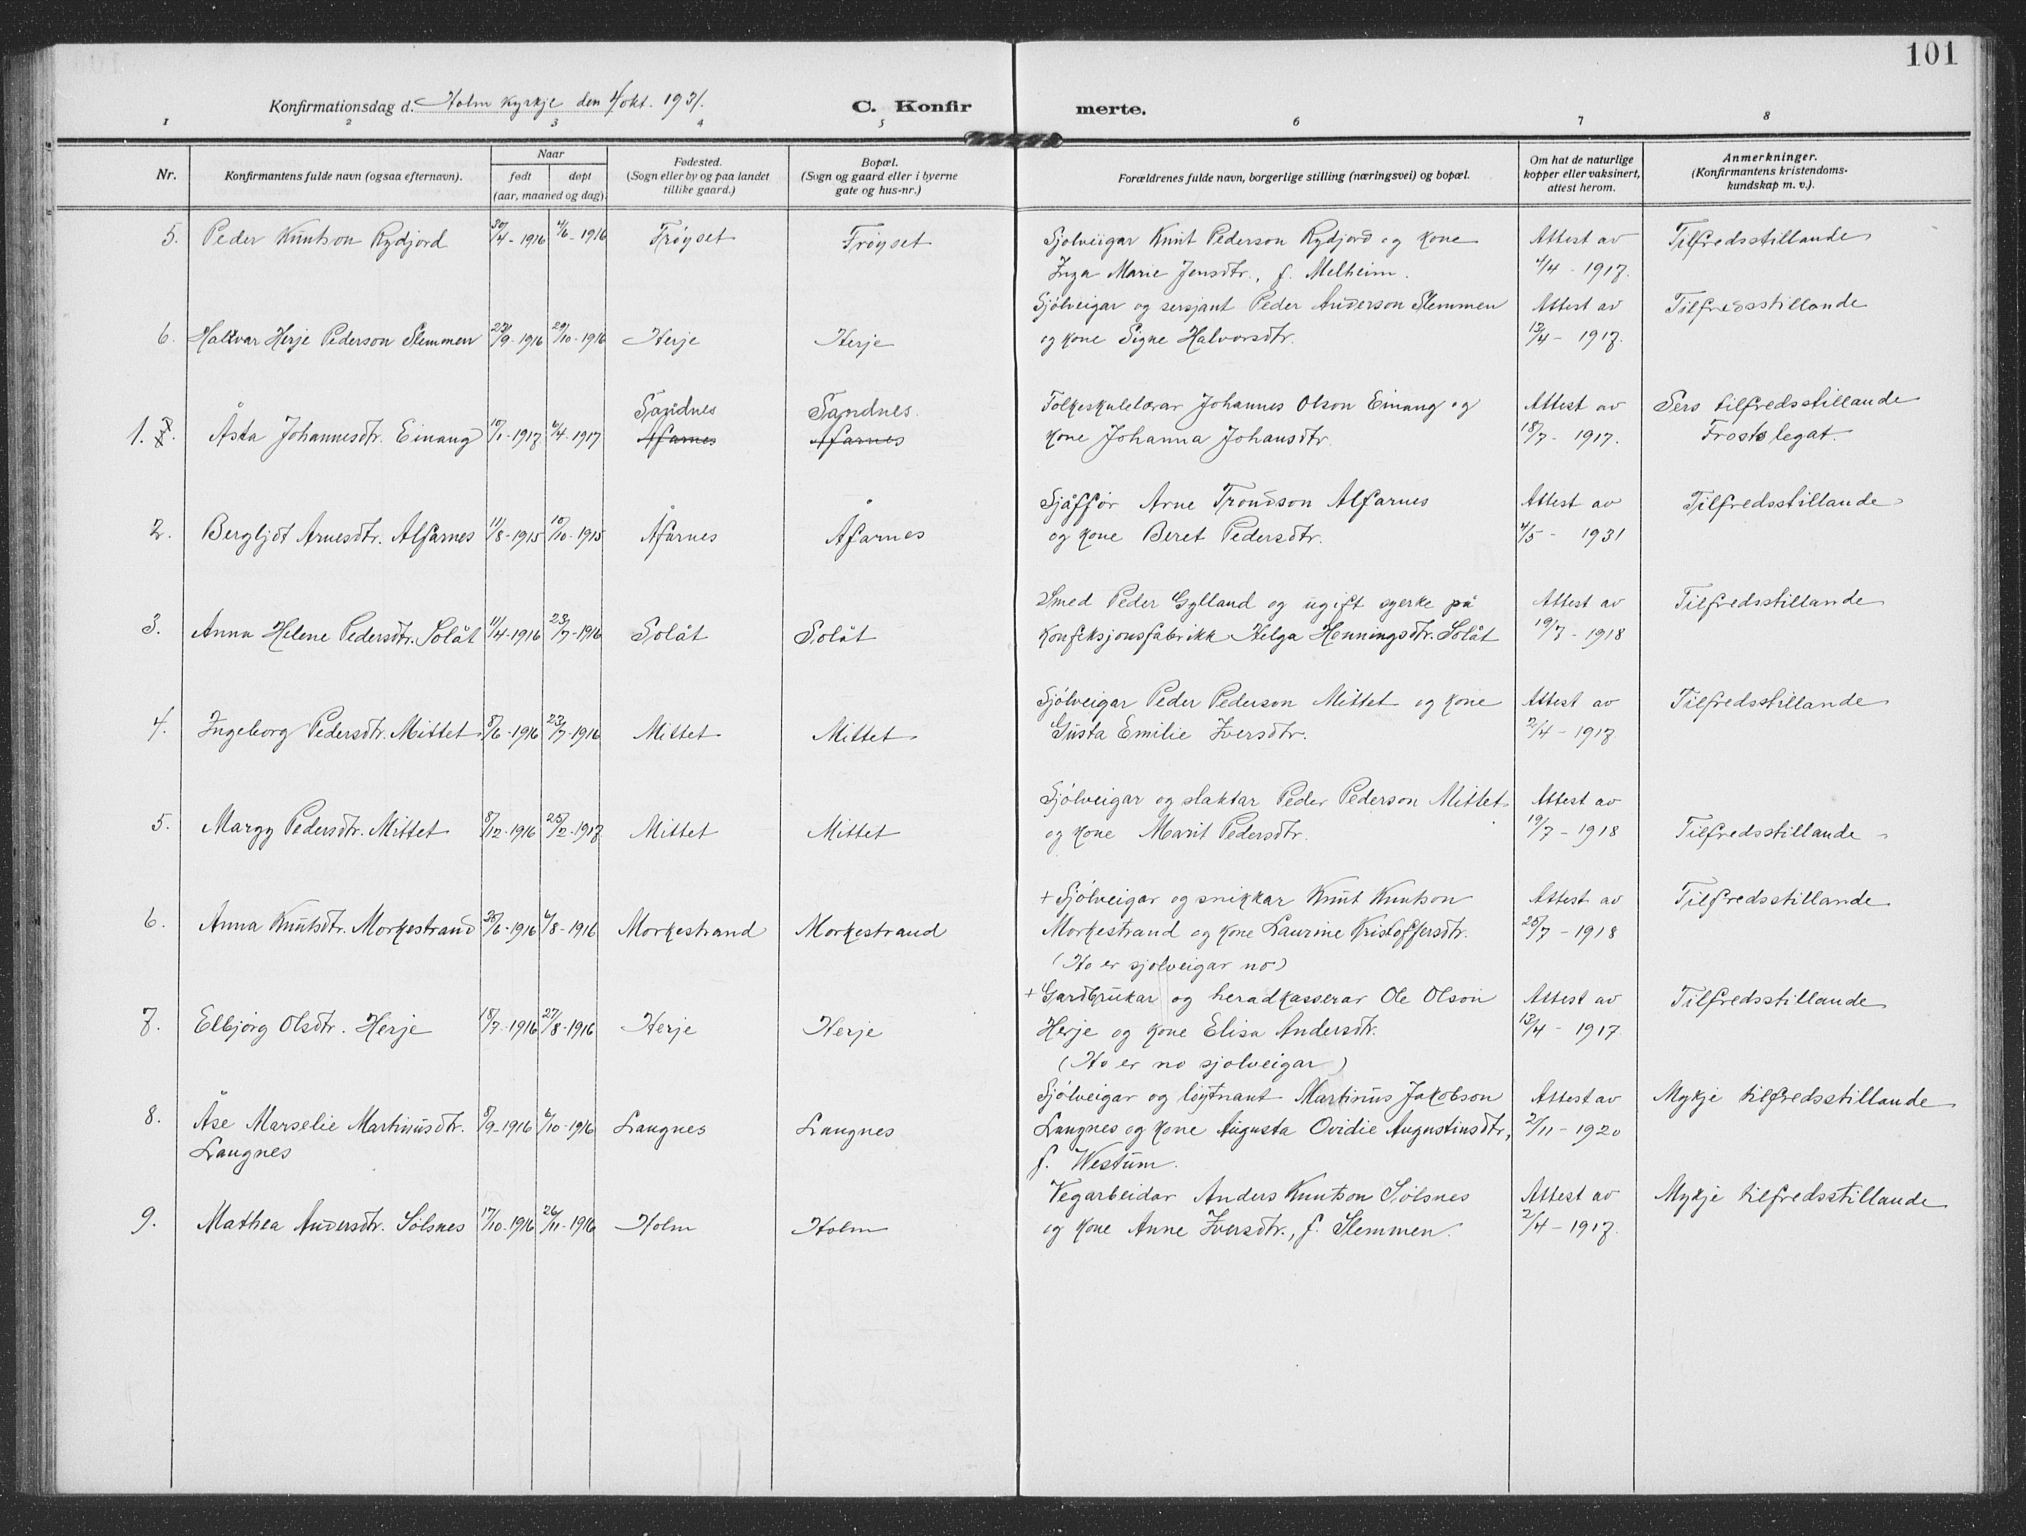 101
Konfirmationsdag d. Holm Kyrkje den 4 okt. 1931.
C. Konfir merte.
1 2 3 4 5 6 7 8
Nr.
Konfirmantens fulde navn (ogsaa efternavn).
Naar
født døpt
(aar, maaned og dag)
Fødested.
(Sogn eller by og paa landet
tillike gaard.)
Bopæl.
(Sogn og gaard eller i byerne
gate og hus-nr.)
Forældrenes fulde navn, borgerlige stilling (næringsvei) og bopæl.
Om hat de naturlige
kopper eller vaksinert,
attest herom.
Anmerkninger.
(Konfirmantens kristendoms-
kundskap m. v.).
5. Peder Knutson Rydjord 30/4-1916 4/6-1916 Frøyset Frøyset Sjølveigar Knut Pederson Rydjord og kone Attest av Tilfredsstillande
Inga Marie Jensdtr., f. Melheim. 4/4-1917.
Sjølveigar og sersjant Peder Anderson Slemmen Attest av Tilfredsstillande
6. Halvar Herje Pederson Slemmen 27/9-1916 29/10-1916 Herje Herje og kone Signe Halvorsdtr. 13/4-1917.
Sandnes Sandnes. Folkeskulelærar Johannes Olson Einang og Attest av Sers tilfredsstillande
1. 7. Åsta Johannesdtr. Einang 10/1-1917 6/4-1917 Åfarnes Åfarnes kone Johanna Johansdtr. 18/7-1917. Frosts legat.
Sjåffør Arne Trondson Alfarnes Attest av Tilfredsstillande
2. Bergljot Arnesdtr. Alfarnes 11/8-1915 10/10-1915 Åfarnes Åfarnes og kone Beret Pedersdtr. 4/5-1931
Smed Peder Gylland og ugift syerke på Attest av Tilfredsstillande
3. Anna Helene Pedersdtr. Solåt 11/4-1916 23/7-1916 Solåt Solåt Konfeksjonsfabrikk Helga Henningsdtr. Solåt 19/7-1918
Sjølveigar Peder Pederson Mittet og kone Attest av Tilfredsstillande
4. Ingeborg Pedersdtr. Mittet 8/6-1916 23/7-1916 Mittet Mittet Gusta Emilie Iversdtr. 2/4-1917
Sjølveigar og slaktar Peder Pederson Mittet Attest av
5. Margy Pedersdtr. Mittet 8/12-1916 25/2-1917 Mittet Mittet og kone Marit Pedersdtr. 19/7-1918 Tilfredsstillande
+ Sjølveigar og snikkar Knut Knutson Attest av Tilfredsstillande
6. Anna Knutsdtr. Morkestrand 26/6-1916 6/8-1916 Morkestrand Morkestrand Morkestrand og kone Laurine Kristoffersdtr. 25/7-1918
(Ho er sjølveigar no)
+ Gardbrukar og heradkasserar Ole Olson Attest av Tilfredsstillande
7. Elbjørg Olsdtr. Herje 18/7-1916 27/8-1916 Herje Herje Herje og kone Elisa Andersdtr. 13/4-1917.
(Ho er no sjølveigar)
Sjølveigar og løytnant Martinus Jakobson Attest av Mykje tilfredsstillande
8. Åse Marselie Martinusdtr. 8/9-1916 6/10-1916 Langnes Langnes Langnes og kone Augusta Ovidie Augustinsdtr, 2/11-1920
Langnes f. Westum.
Vegarbeidar Anders Knutson Sølsnes Attest av Mykje tilfredsstillande
9. Mathea Andersdtr. Sølsnes 17/10-1916 26/11-1916 Holm Holm og kone Anne Iversdtr., f. Slemmen. 2/4-1917.